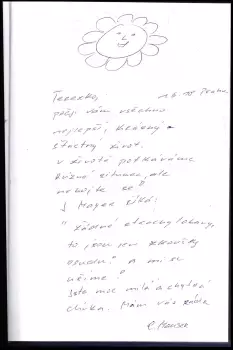 Terezko, 1.6.18 Praha
přeji vám všechno
nejlepší, krásný
šťastný život.
V životě potkáváme
různé situace, ale
nebojte se!
J Mayer říká:
"žádné strachy lokany,
to jsou jen zkoušky
osudu." A mi se
učíme!
Jste moc milá a chytrá
dívka. Mám vás ráda